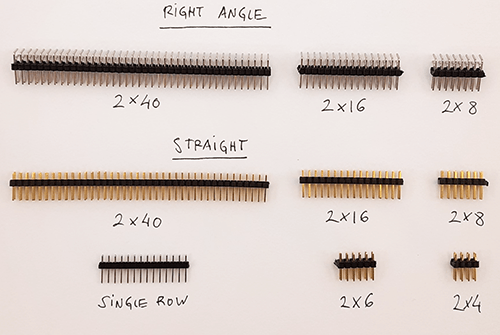 RIGHT ANGLE
2x40 2x16 2x8
STRAIGHT
2x40 2x16 2x8
SINGLE ROW 2x6 2x4